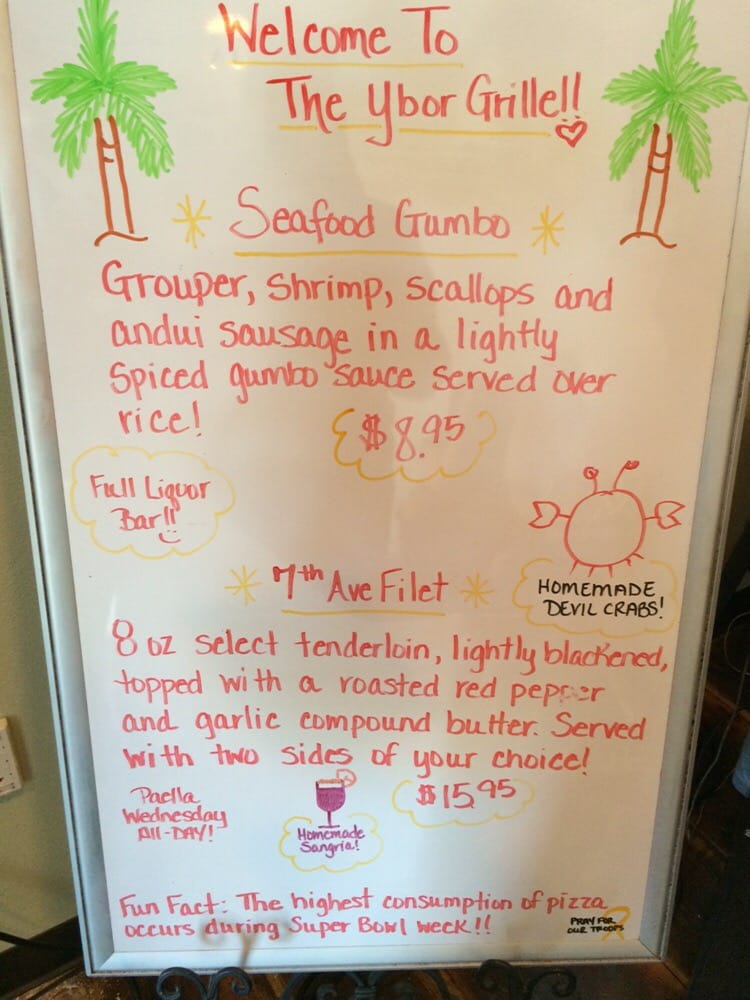 Welcome To
The Ybor Grille!!
Seafood Gumbo
Grouper, Shrimp, Scallops and
andui sausage in a lightly
Spiced gumbo sauce served over
rice!
$8.95
Full Liquor
Bar!!
HOMEMADE
DEVIL CRABS!
7th Ave Filet
8 oz select tenderloin, lightly blackened,
topped with a roasted red pepper
and garlic compound butter. Served
with two sides of your choice!
$15.95
Paella
Wednesday
All-DAY!
Homemade
Sangria!
Fun Fact: The highest consumption of pizza
occurs during Super Bowl week!!
PRAY FOR
OUR TROOPS